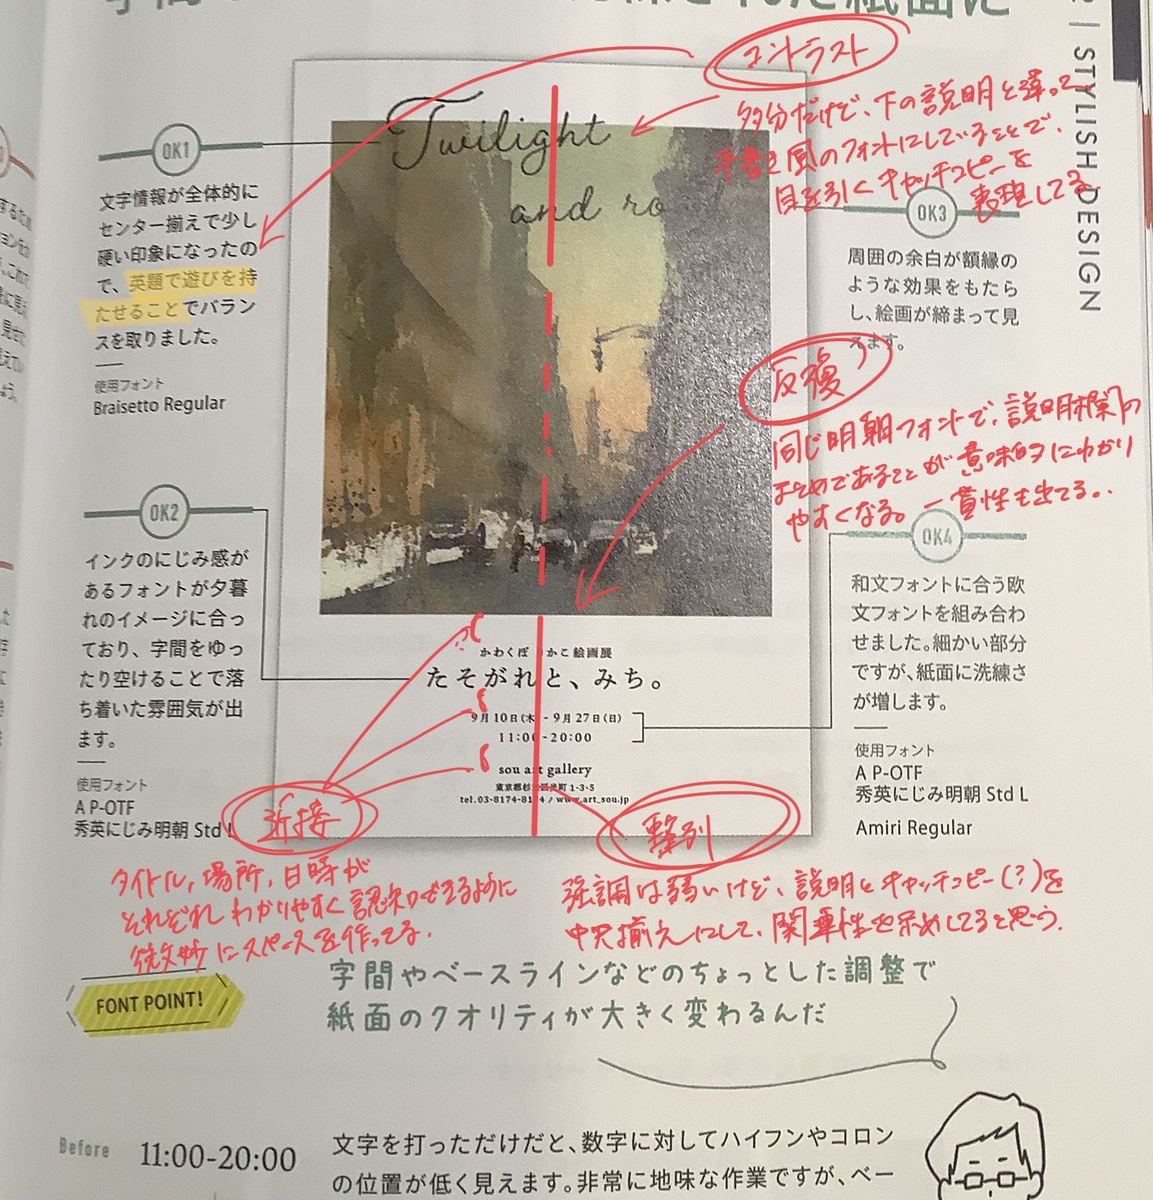 STYLISH DESIGN
コントラスト
多分だけど、下の説明と違って
手書き風のフォントにしていることで、
目を引くキャッチコピーを
表現してる
Twilight
and ro
OK1
文字情報が全体的に
センター揃えで少し
硬い印象になったの
で、英題で遊びを持
たせることでバラン
スを取りました。
使用フォント
Braisetto Regular
OK3
周囲の余白が額縁の
ような効果をもたら
し、絵画が締まって見
えます。
反復
同じ明朝フォントで、説明欄の
まとめであることが意味的にわかり
やすくなる。一貫性も出てる。
OK2
インクのにじみ感が
あるフォントが夕暮
れのイメージに合っ
ており、字間をゆっ
たり空けることで落
ち着いた雰囲気が出
ます。
使用フォント
A P-OTF
秀英にじみ明朝 Std L
OK4
和文フォントに合う欧
文フォントを組み合わ
せました。細かい部分
ですが、紙面に洗練さ
が増します。
使用フォント
A P-OTF
秀英にじみ明朝 Std L
Amiri Regular
かわくぼ かこ絵画展
たそがれと、みち。
9月10日(木) - 9月27日(日)
11:00-20:00
sou art gallery
東京都杉 光町 1-3-5
tel.03-8174-81 4 / www.art_sou.jp
近接
タイトル、場所、日時が
それぞれわかりやすく認知できるように
微妙にスペースを作ってる。
整列
強調は弱いけど、説明とキャッチコピー(?)を
中央揃えにして、関連性を示めしてると思う。
FONT POINT!
字間やベースラインなどのちょっとした調整で
紙面のクオリティが大きく変わるんだ
Before
11:00-20:00
文字を打っただけだと、数字に対してハイフンやコロン
の位置が低く見えます。非常に地味な作業ですが、ベー